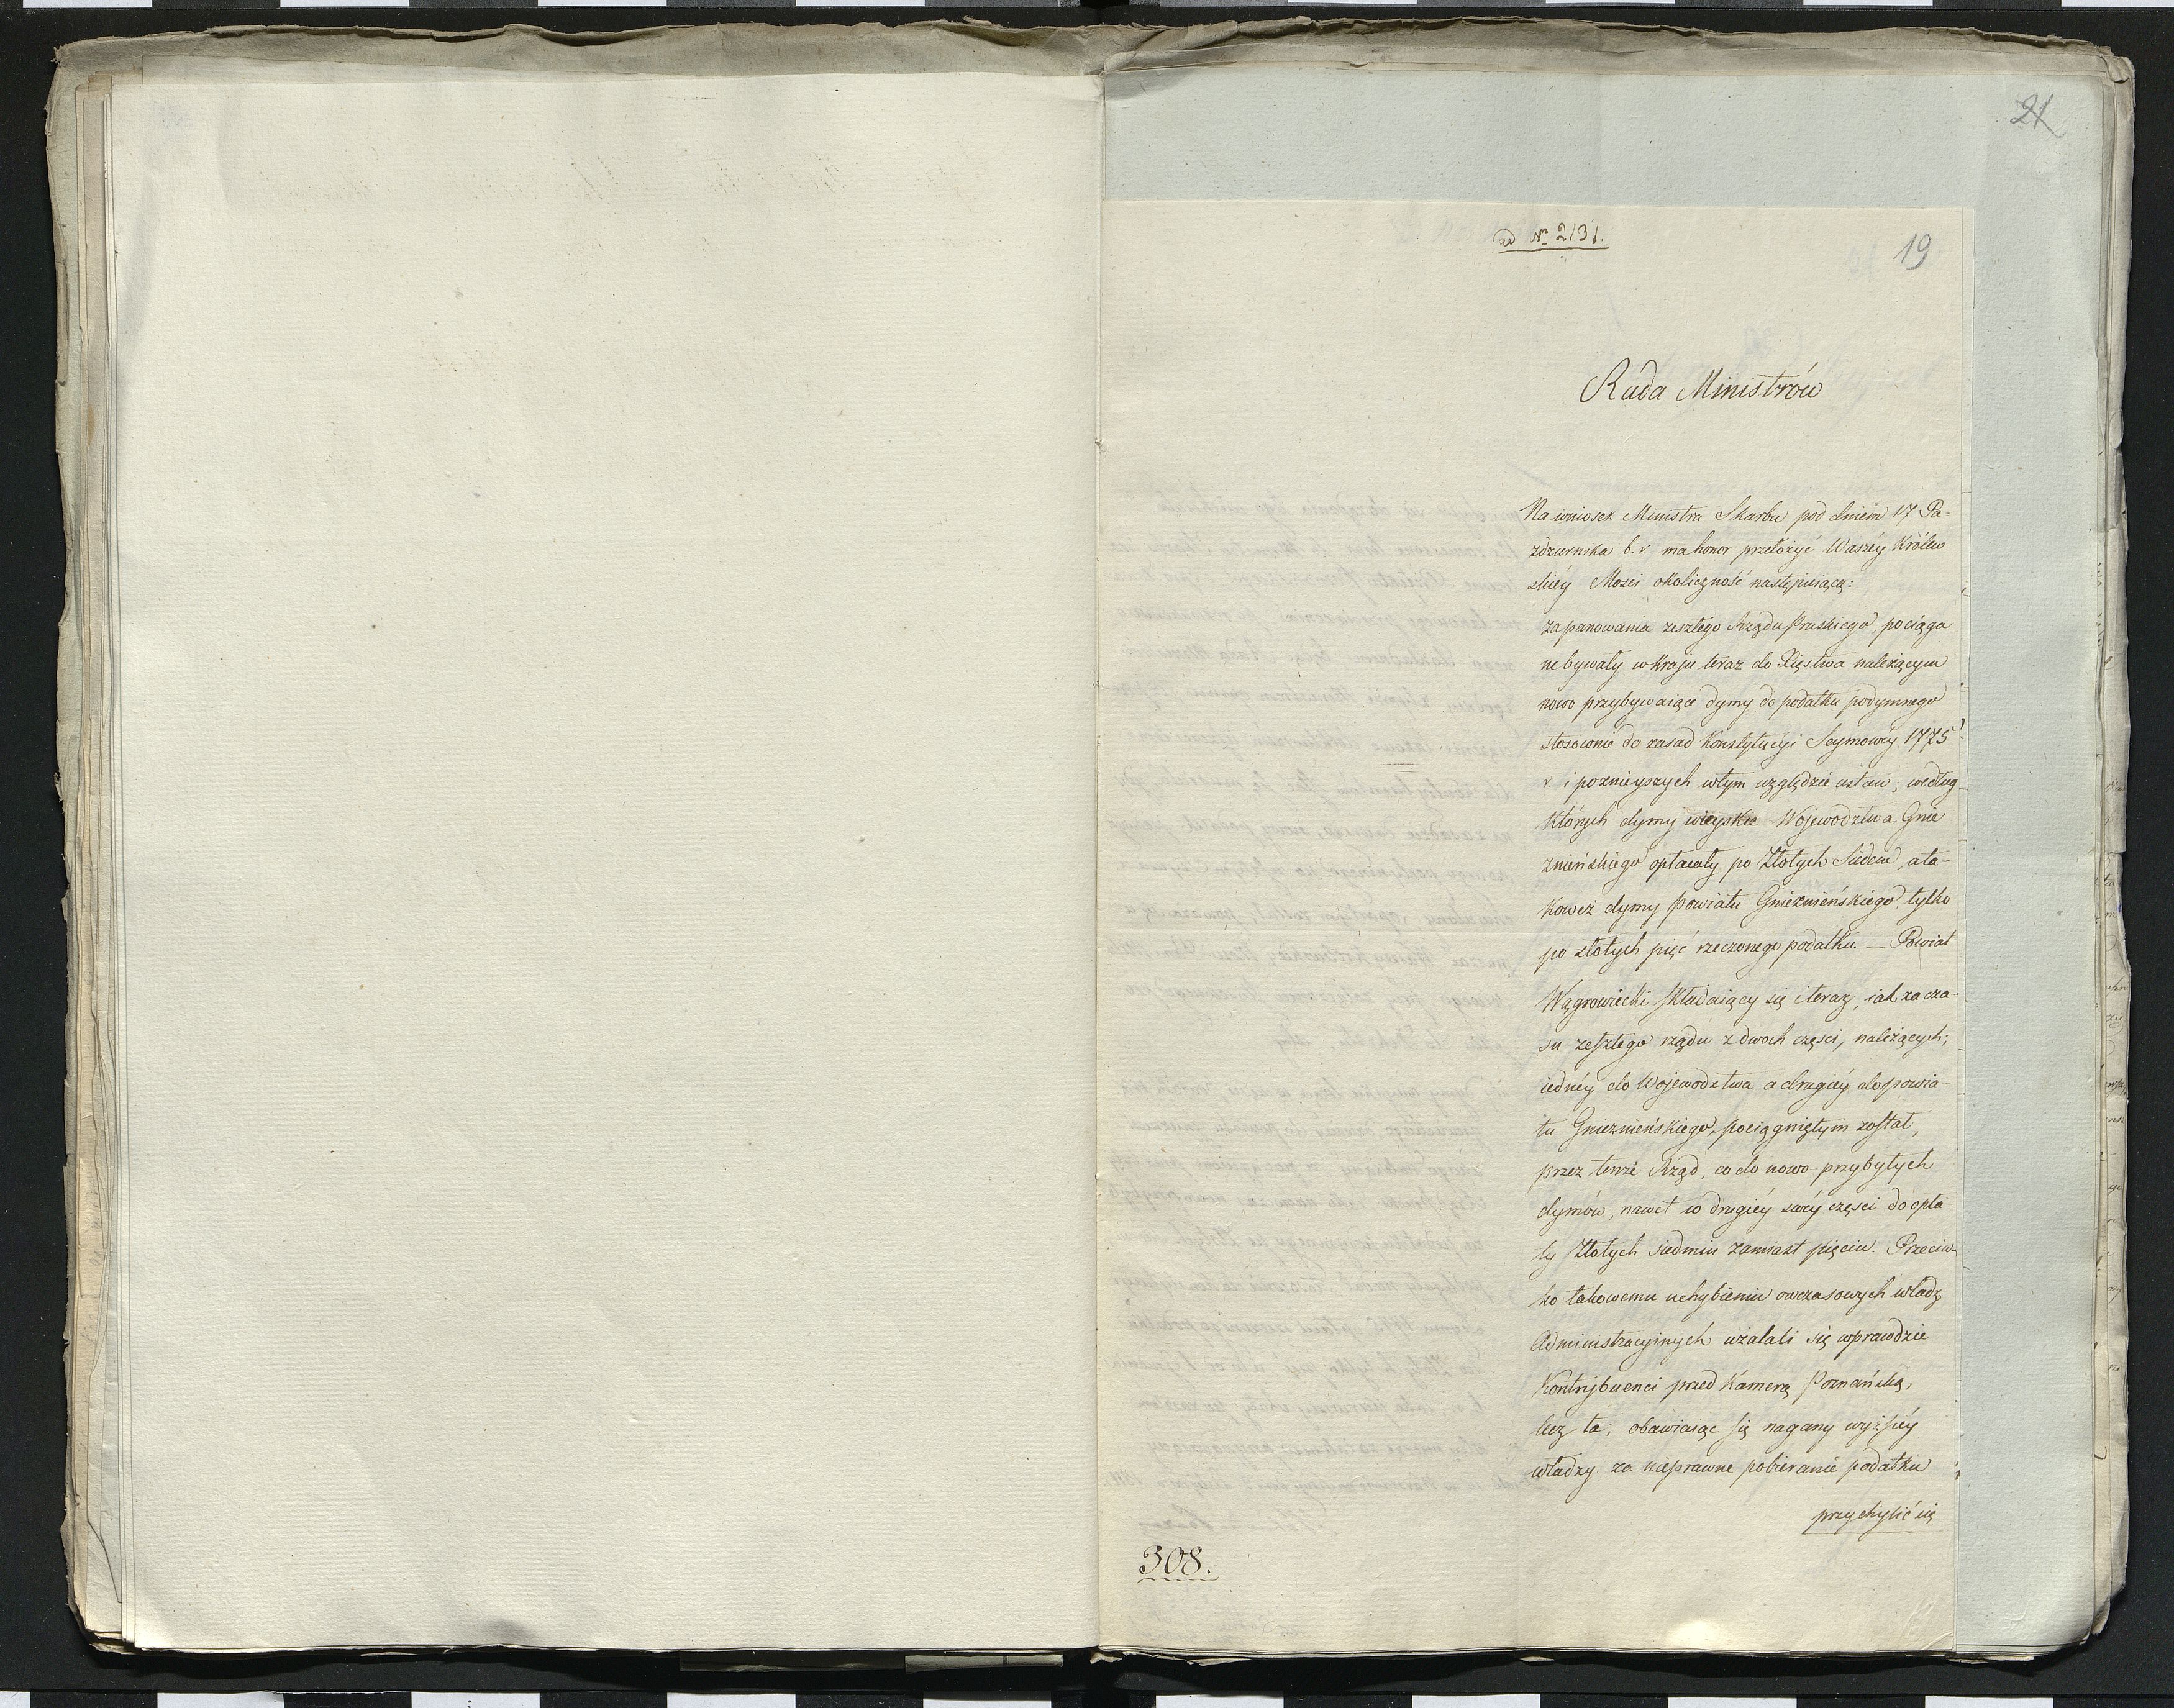 21
ad Nr 2131.
19
Rada Ministrów
Na wniosek Ministra Skarbu pod dniem 17 Pa-
zdziernika b. r. ma honor przełożyć Waszey Królew
skiéy Mości okoliczność następuiącą:
za panowania zeszłego Rządu Pruskiego, pociąga
ne bywały w Kraju teraz do Xięstwa należącym
nowo przybywaiące dymy do podatku podymnego
stosownie do zasad Konstytucyi Seymowéy 1775
r. i poznieyszych w tym względzie ustaw; według
których dymy wieyskie Województwa Gnie
znieńskiego opłacały po Złotych Siedem, a ta-
koweż dymy Powiatu Gnieznieńskiego, tylko
po złotych pięć rzeczonego podatku. — Powiat
Wągrowiecki składaiący się i teraz, iak za cza-
su zeszłego rządu z dwoch części, należących;
iednéy do Województwa a drugiéy do powia-
tu Gnieznieńskiego, pociągniętym został,
przez tenże Rząd, co do nowo-przybyłych
dymów, nawet w drugiéy swéy części do opła
ty Złotych siedmiu zamiast pięciu. Przeciw
ko takowemu uchybieniu owczasowych władz
Administracyinych użalali się wprawdzie
Kontrybuenci przed Kamerą Poznańską,
lecz ta; obawiaiąc się nagany wyższéy
władzy. za nieprawne pobieranie podatku
przychylić się
308.